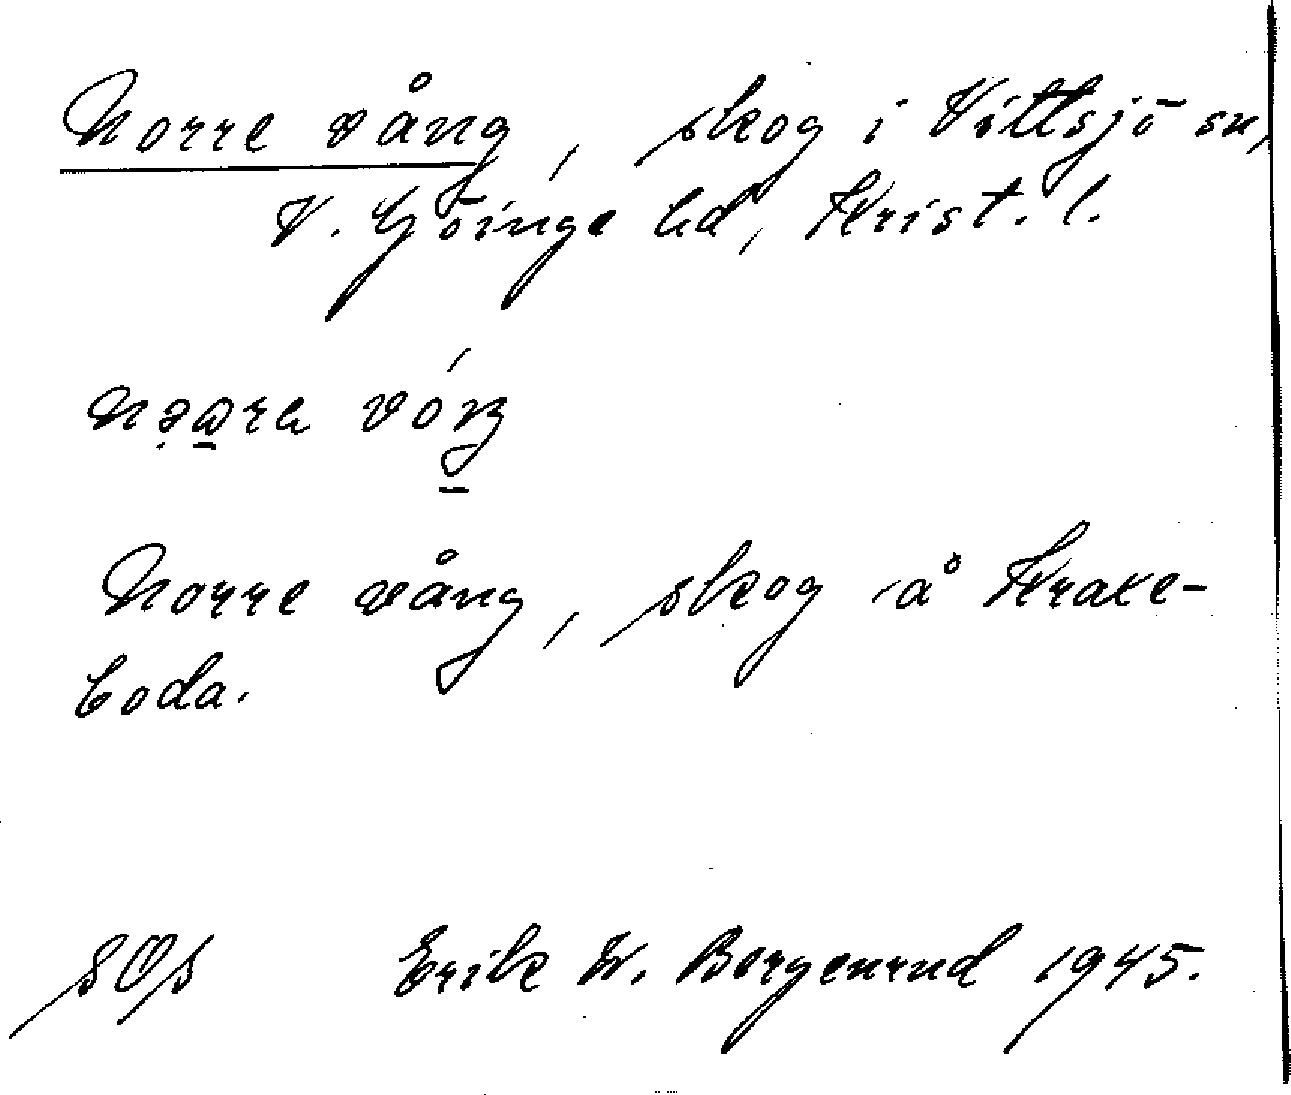 Norre vång, skog i Vittsjö sn,
V. Göinge hd, Krist. l.
Norre vång, skog å Krake-
boda.
SOs Erik W. Bergenrud 1945.